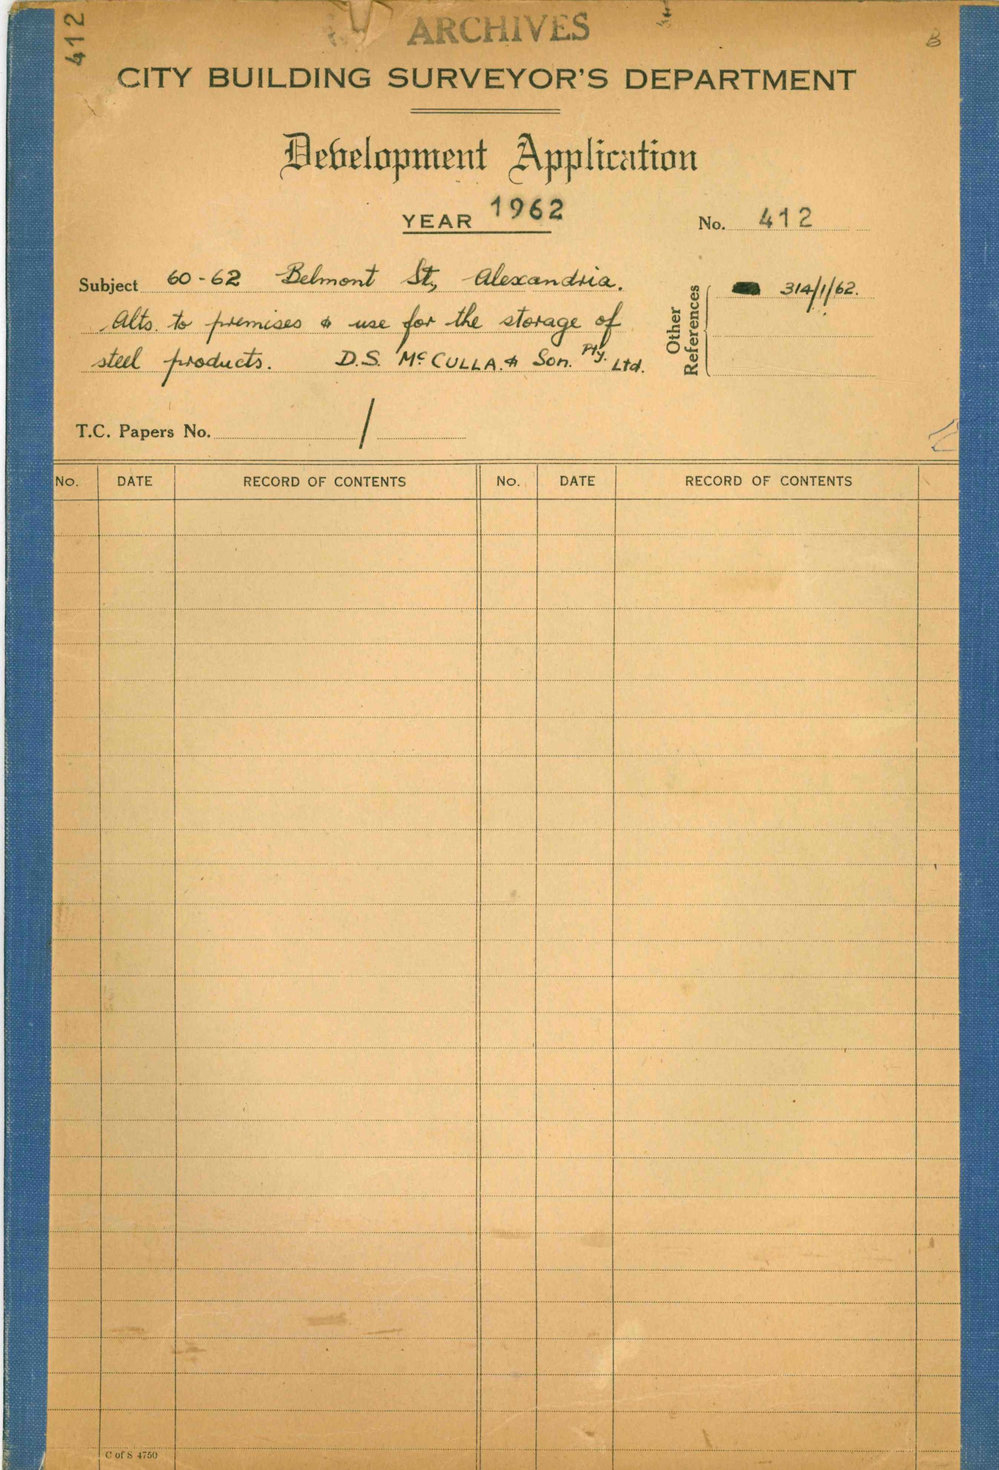 412
ARCHIVES
CITY BUILDING SURVEYOR'S DEPARTMENT
Development Application
YEAR 1962
No. 412
Subject 60-62 Belmont St, Alexandria.
Alts. to premises & use for the storage of
steel products. D.S. McCULLA. & Son. Pty. Ltd.
Other References 314/1/62.
T.C. Papers No. /
No. DATE RECORD OF CONTENTS No. DATE RECORD OF CONTENTS
C of S 4750